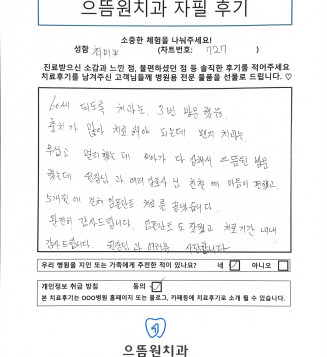 으뜸원치과 자필 후기
소중한 경험을 나눠주세요!
성함 (차트번호: 727 )
진료받으신 소감과 느낀 점, 불편하셨던 점 등 솔직한 후기를 적어주세요
치료후기를 남겨주신 고객님들께 병원용 전문 물품을 선물로 드립니다. ♡
60세 되도록 치과는 3번 방문 했음.
충치가 많아 치료해야 되는데 왠지 치과는
무섭고 멀리했는데 치아가 다 상해서 으뜸원 방문
했는데 원장님과 여러 간호사님 친절에 마음이 편했고
5개월에 걸쳐 임플란트 치료를 끝냈습니다.
완전히 감사드립니다. 임플란트도 잘됐고 치료기간 내내
감사드립니다. 원장님과 여러분 사랑합니다
우리 병원을 지인 또는 가족에게 추천한 적이 있나요? 네 ☑ 아니오 ☐
개인정보 취급 방침 동의 ☑
본 치료후기는 OOO병원 홈페이지 또는 블로그, 카페등에 치료후기로 소개 될 수 있습니다.
으뜸원치과